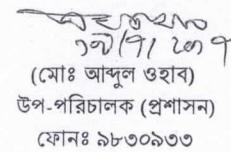 (মোঃ আব্দুল ওহাব)
উপ-পরিচালক (প্রশাসন)
ফোনঃ ৯৮৩০৯৩৩